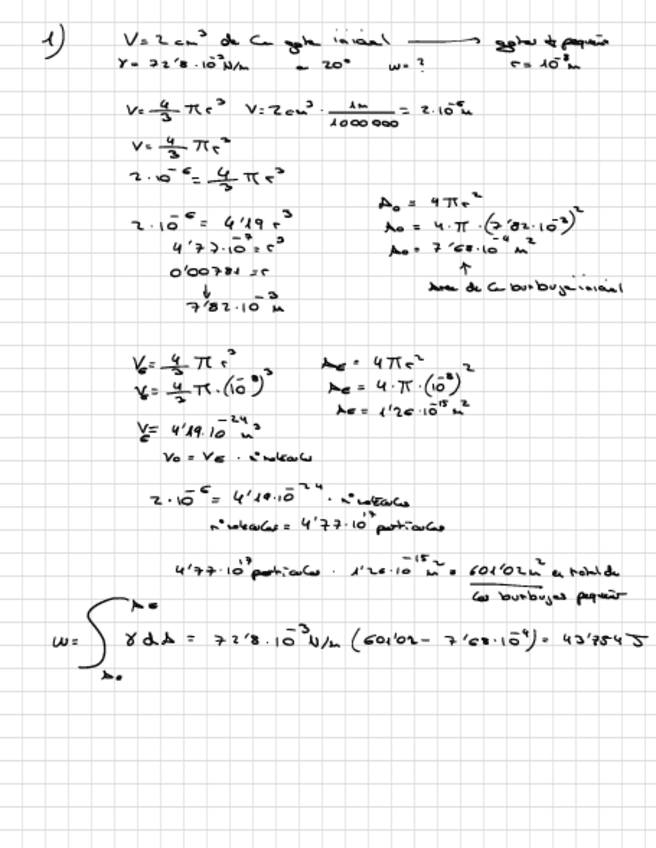 1) V = 2 cm³ de la gota inicial ⟶ gotas + pequeñas
γ = 72'8 · 10⁻³ N/m a 20° w = ? r = 10⁻⁸ m
V = 4/3 π r³ V = 2 cm³ · 1m / 1000000 = 2 · 10⁻⁶ m
V = 4/3 π r³
2 · 10⁻⁶ = 4/3 π r³
2 · 10⁻⁶ = 4'19 r³
4'77 · 10⁻⁷ = r³
0'00781 = r
↓
7'82 · 10⁻³ m
A₀ = 4 π r²
A₀ = 4 · π · (7'82 · 10⁻³)²
A₀ = 7'68 · 10⁻⁴ m²
↑
Area de la burbuja inicial
V_f = 4/3 π r³
V_f = 4/3 π · (10⁻⁸)³
V_f = 4'19 · 10⁻²⁴ m³
A_f = 4 π r²
A_f = 4 · π · (10⁻⁸)²
A_f = 1'26 · 10⁻¹⁵ m²
V₀ = V_f · nº moleculas
2 · 10⁻⁶ = 4'19 · 10⁻²⁴ · nº moleculas
nº moleculas = 4'77 · 10¹⁷ particulas
4'77 · 10¹⁷ particulas · 1'26 · 10⁻¹⁵ m² = 601'02 m² es total de
las burbujas pequeñas
w = ∫_{A₀}^{A_f} γ dA = 72'8 · 10⁻³ N/m (601'02 - 7'68 · 10⁻⁴) = 43'754 J